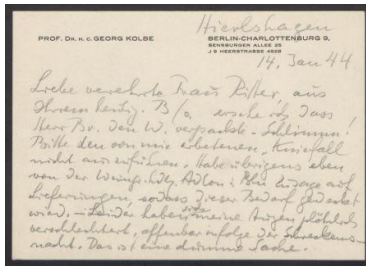 Hierlshagen
PROF. DR. H. C. GEORG KOLBE
BERLIN-CHARLOTTENBURG 9,
SENSBURGER ALLEE 25
J 9 HEERSTRASSE 4528
14. Jan 44
Liebe verehrte Frau Ritter, aus
Ihrem heutig. B/a ersehe ich dass
Herr Br. den W. verpackte - Schlimm!
Bitte den von mir erbetenen „Kniefall
nicht auszuführen. Habe übrigens eben
von der Weingr. Hdlg. Adlon i. Bln Zusage auf
Lieferungen, sodass dieser Bedarf gedeckt
wird. - Leider haben sich meine Augen plötzlich
verschlechtert, offenbar infolge der Schreckens-
nacht. Das ist eine dumme Sache.